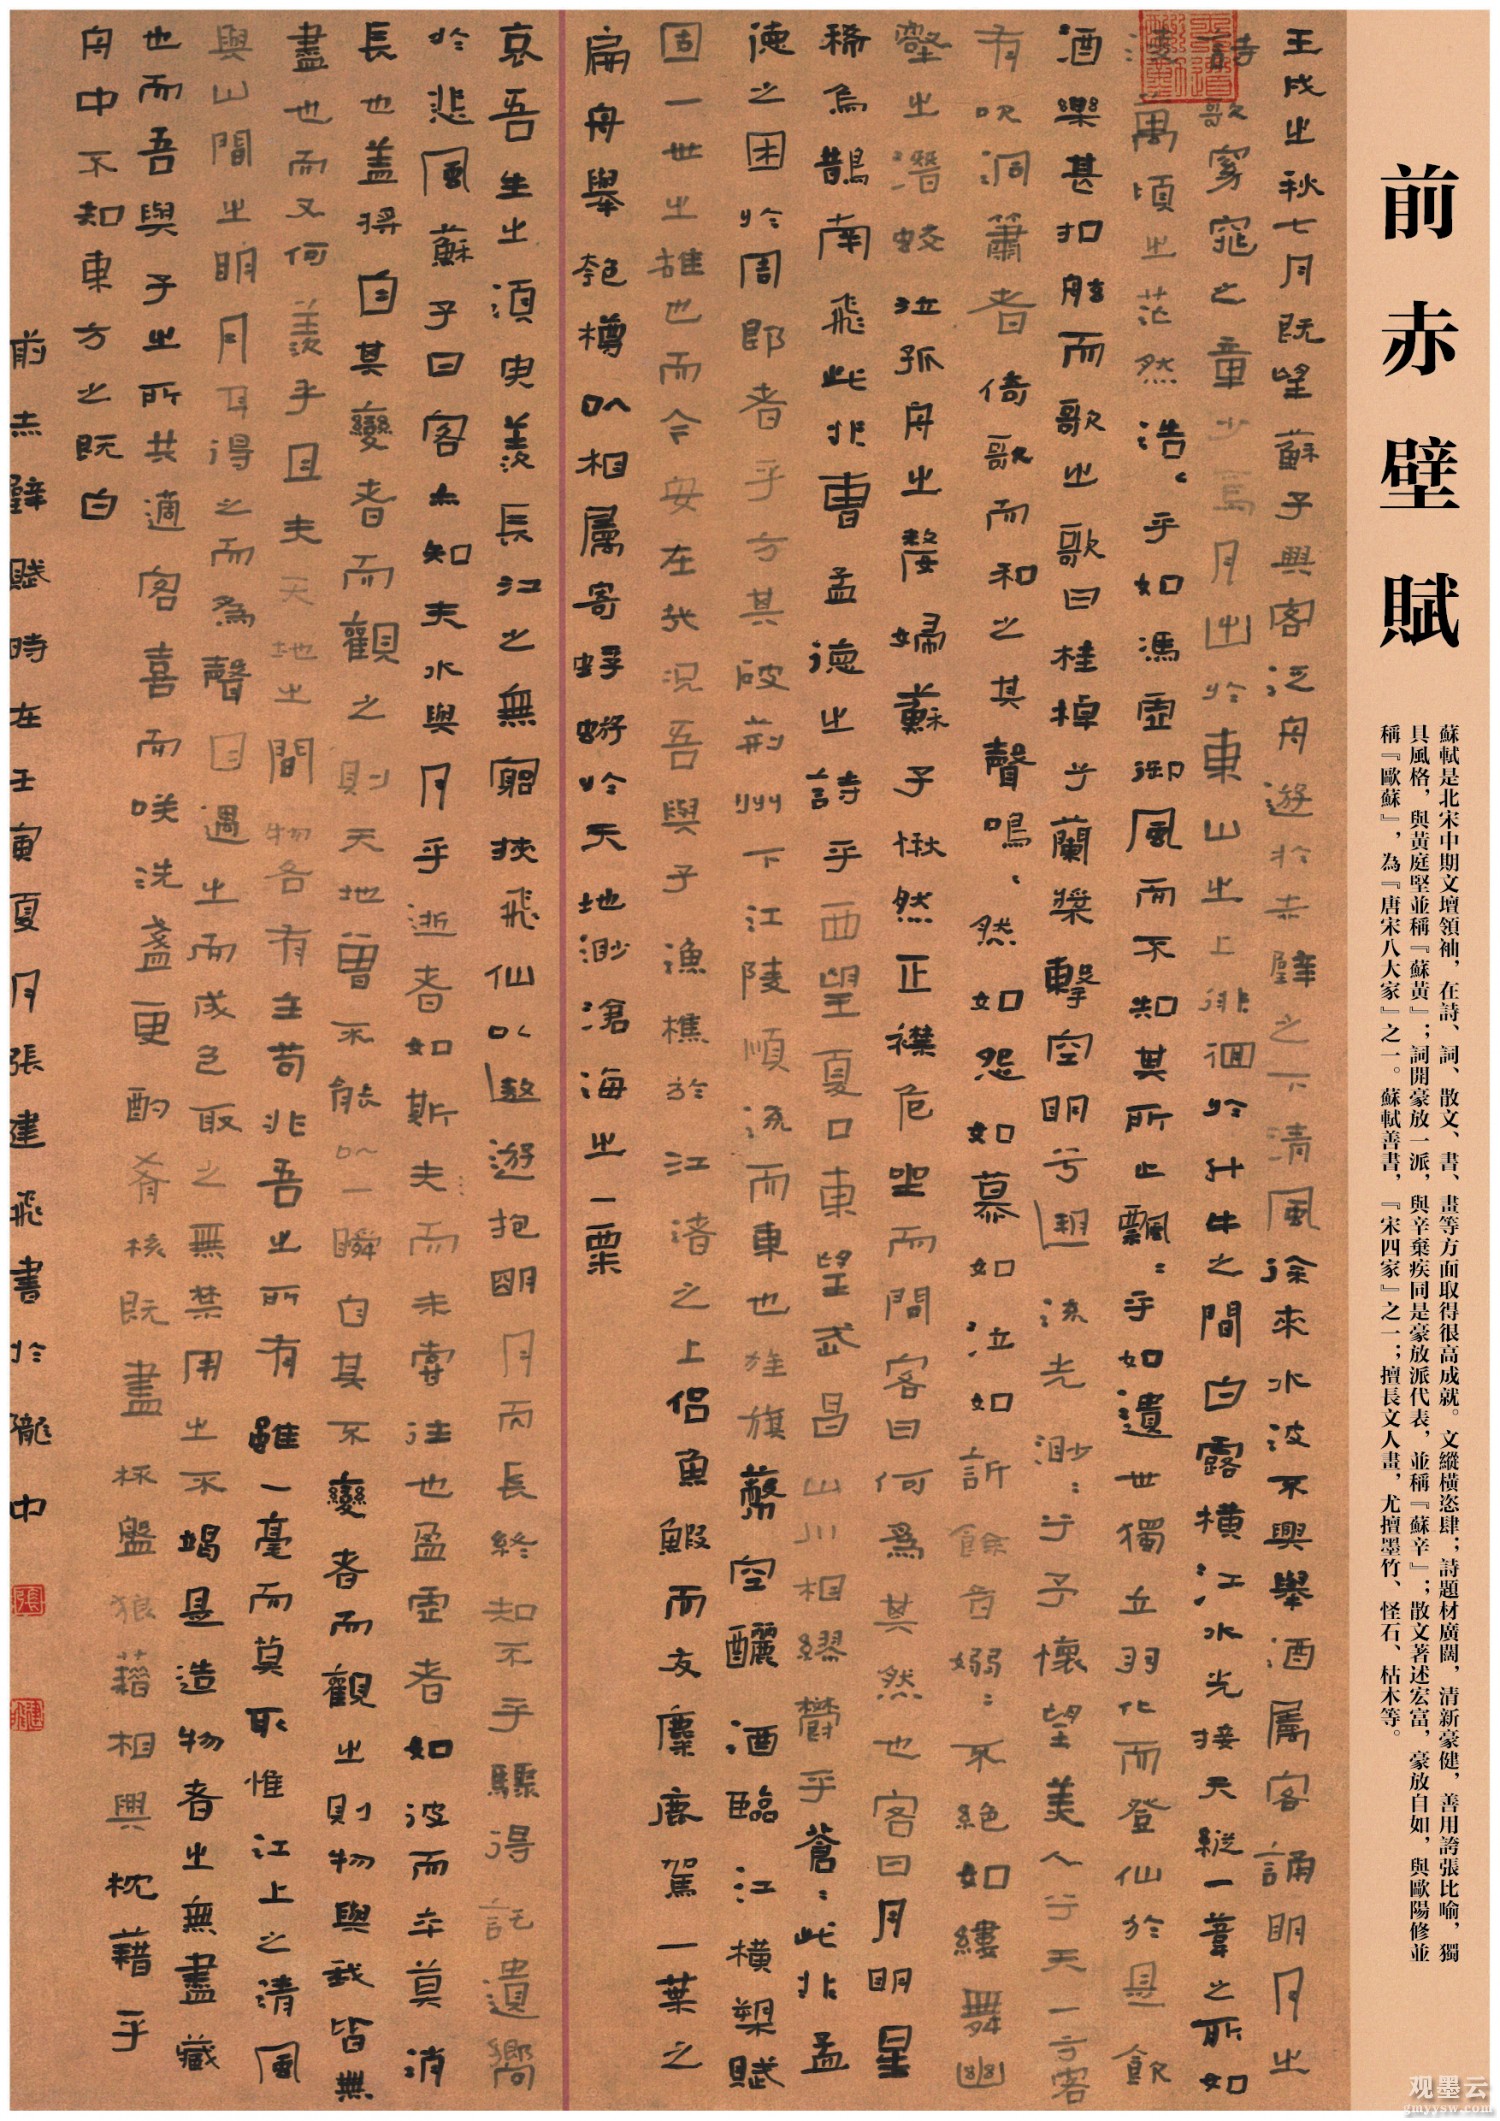 前赤壁賦
蘇軾是北宋中期文壇領袖，在詩、詞、散文、書、畫等方面取得很高成就。文縱橫恣肆；詩題材廣闊，清新豪健，善用誇張比喻，獨
具風格，與黃庭堅並稱『蘇黃』；詞開豪放一派，與辛棄疾同是豪放派代表，並稱『蘇辛』；散文著述宏富，豪放自如，與歐陽修並
稱『歐蘇』，為『唐宋八大家』之一。蘇軾善書，『宋四家』之一；擅長文人畫，尤擅墨竹、怪石、枯木等。
壬戌之秋七月既望蘇子與客泛舟遊於赤壁之下清風徐來水波不興舉酒屬客誦明月之
詩歌窈窕之章少焉月出於東山之上徘徊於斗牛之間白露橫江水光接天縱一葦之所如
淩萬頃之茫然浩、乎如馮虛御風而不知其所止飄：乎如遺世獨立羽化而登仙於是飲
酒樂甚扣舷而歌之歌曰桂棹兮蘭槳擊空明兮遡流光渺：兮予懷望美人兮天一方客
有吹洞簫者倚歌而和之其聲嗚、然如怨如慕如泣如訴餘音嫋：不絕如縷舞幽
壑之潛蛟泣孤舟之嫠婦蘇子愀然正襟危坐而問客曰何爲其然也客曰月明星
稀烏鵲南飛此非曹孟德之詩乎西望夏口東望武昌山川相繆鬱乎蒼：此非孟
德之困於周郎者乎方其破荊州下江陵順流而東也旌旗蔽空釃酒臨江橫槊賦
固一世之雄也而今安在哉況吾與子漁樵於江渚之上侶魚鰕而友麋鹿駕一葉之
扁舟舉匏樽以相屬寄蜉蝣於天地渺滄海之一粟
哀吾生之須臾羨長江之無窮挾飛仙以遨遊抱明月而長終知不乎驟得託遺響
於悲風蘇子曰客亦知夫水與月乎逝者如斯夫而未嘗往也盈虛者如波而卒莫消
長也蓋將自其變者而觀之則天地曾不能以一瞬自其不變者而觀之則物與我皆無
盡也而又何羨乎且夫天地之間物各有主苟非吾之所有雖一毫而莫取惟江上之清風
與山間之明月耳得之而為聲目遇之而成色取之無禁用之不竭是造物者之無盡藏
也而吾與子之所共適客喜而咲洗盞更酌肴核既盡杯盤狼藉相與枕藉乎
舟中不知東方之既白
前赤壁賦時在壬寅夏月張建飛書於隴中
观墨云
gmyysw.com